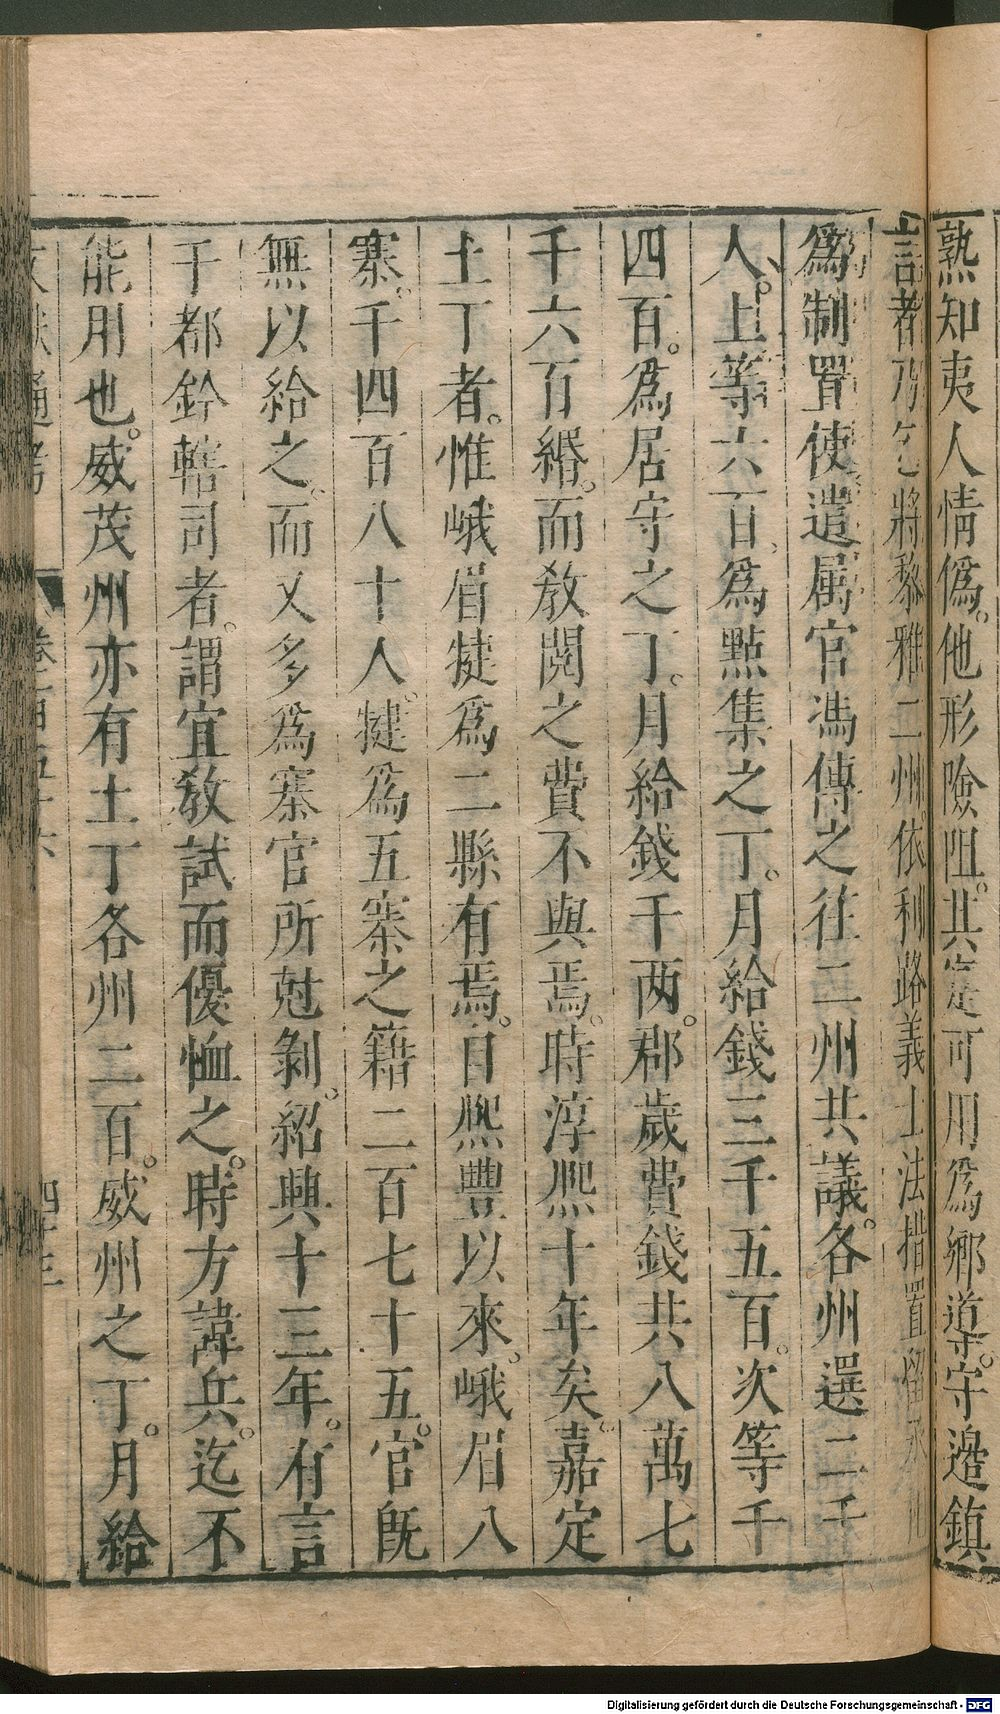 熟知夷人情僞他形險阻其寔可用爲鄉導守邉鎮
言者乃乞將黎雅二州依利路義士法措置留
爲制置使遣属官馮傳之往二州共議各州選二千
人上等六百爲㸃集之丁月給錢三千五百次等千
四百爲居守之丁月給錢千两郡歲費錢共八萬七
千六百緡而敎閱之費不與焉時淳熙十年矣嘉定
土丁者惟峨眉犍爲二縣有焉自熙豐以來峨眉八
寨千四百八十人犍爲五寨之籍二百七十五官旣
無以給之而又多爲寨官所尅剝紹興十三年有言
于都鈐轄司者謂宜敎試而優恤之時方諱兵迄不
能用也威茂州亦有土丁各州二百威州之丁月給
文獻通考 卷一百五十六 四十三
Digitalisierung gefördert durch die Deutsche Forschungsgemeinschaft - DFG